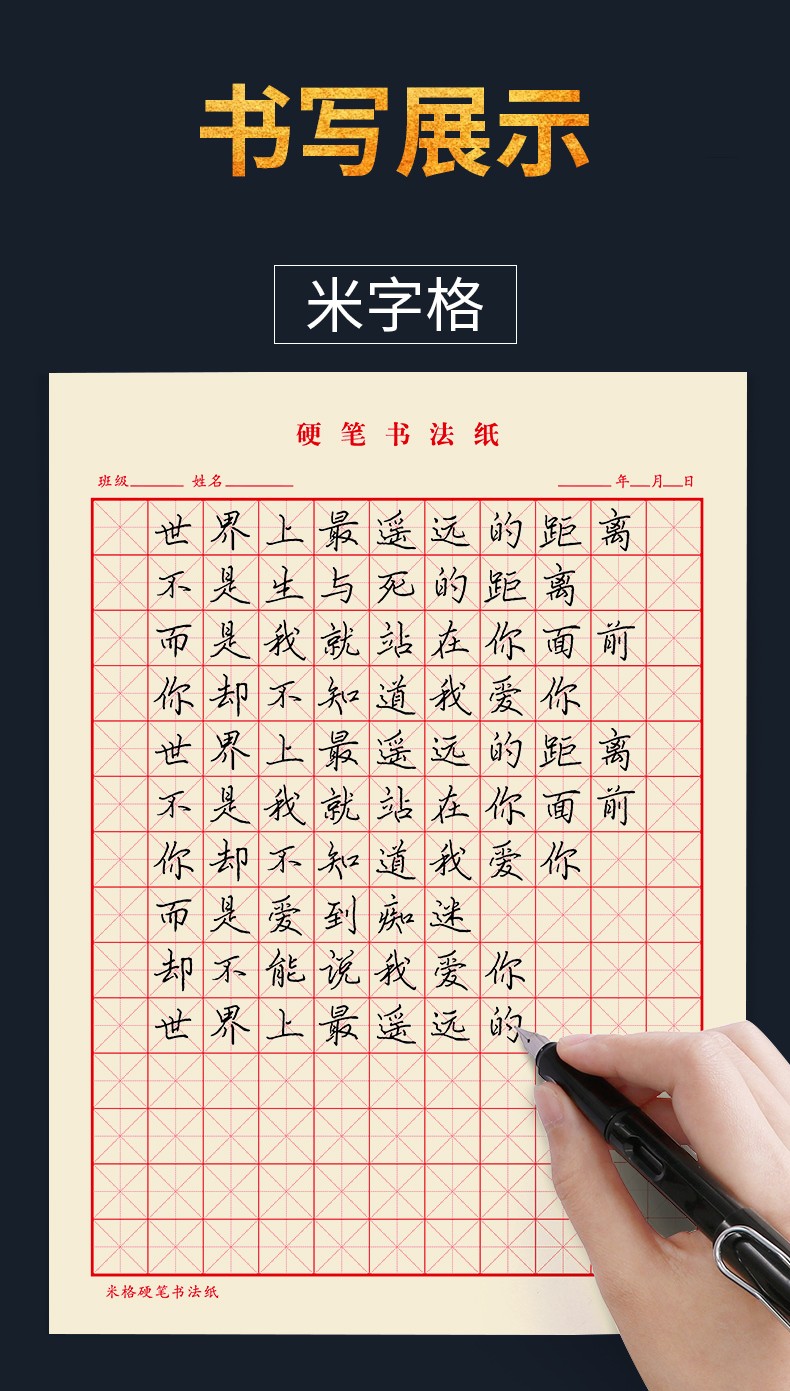 书写展示
米字格
硬笔书法纸
班级 姓名 年 月 日
世界上最遥远的距离
不是生与死的距离
而是我就站在你面前
你却不知道我爱你
世界上最遥远的距离
不是我就站在你面前
你却不知道我爱你
而是爱到痴迷
却不能说我爱你
世界上最遥远的
米格硬笔书法纸